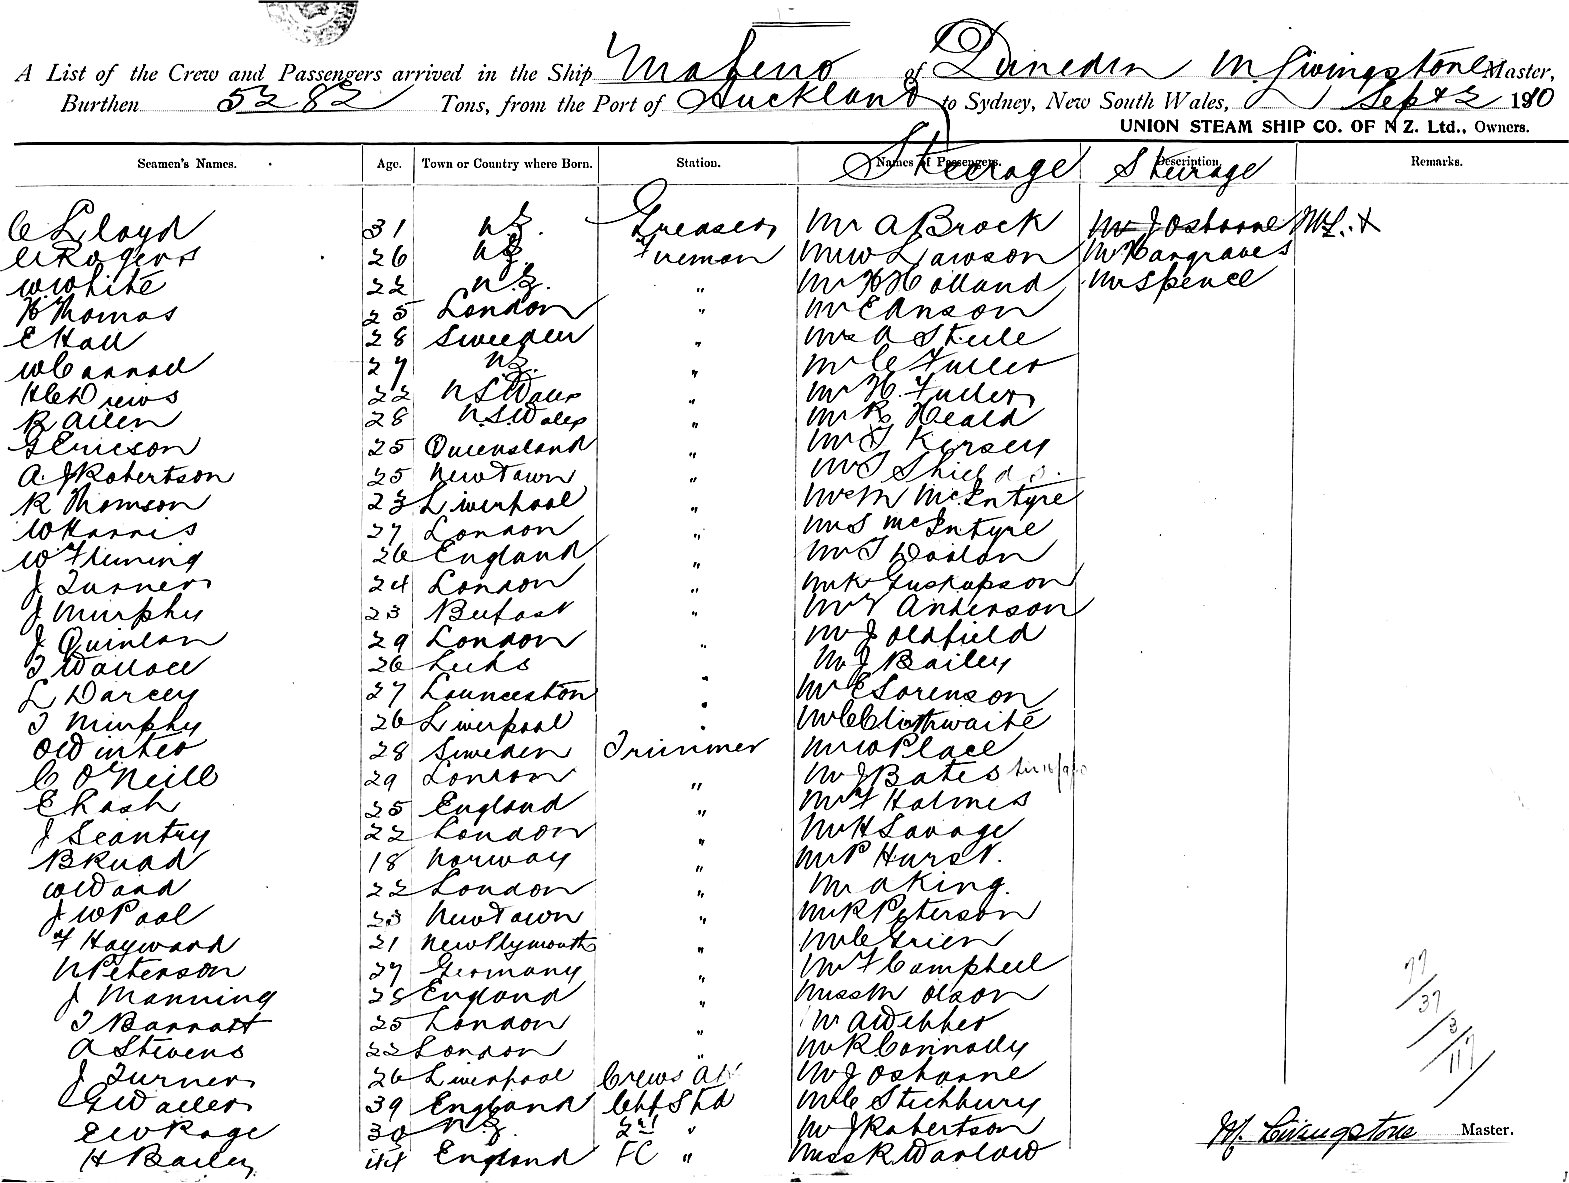 A List of the Crew and Passengers arrived in the Ship Maheno of Dunedin M Livingstone Master,
Burthen 5282 Tons, from the Port of Auckland to Sydney, New South Wales, Sept 2 1910
UNION STEAM SHIP CO. OF N Z. Ltd., Owners.
Seamen's Names. Age. Town or Country where Born. Station. Names of Passengers. Description. Remarks.
Steerage Steerage
C Lloyd 31 N Z. Greaser Mr A Brock Mr J Osborne
Rogers 26 NZ Fireman Mr W Lawson Mr Hargraves
W White 22 N Z. " Mr H Holland Mr Spence
H Thomas 25 London " Mr E Anson
E Hall 28 Sweden " A Steele
W Connad 27 NZ. " Mr C Fuller
H C Drews 22 N S Wales " Mr H. Fuller
R Allen 28 N.S. Wales " Mr R Heald
G Ericson 25 Queensland " Mr T Kersey
A J Robertson 25 New Town " Mr T Shields.
R Thomson 23 Liverpool " M McIntyre
W Harris 27 London " Mr S McIntyre
W Fleming 26 England " Mr T
J Turner 24 London " Mr K Gustafson
J Murphy 23 Belfast " Mr Anderson
J Quinlan 29 London " Mr J Oldfield
T Wallace 26 Leeds Mr J Bailey
L Darcey 27 Launceston " Mr E Sorenson
T Murphy 26 Liverpool " Mr C Clothwaite
O Winter 28 Sweden Trimmer Mr W Place
C O'Neill 29 London " Mr J Bates
E Rash 25 England " Mr F Holmes
J Seantry 22 London " Mr H Savage
B Knad 18 Norway " Mr P Hurst.
W Ward 22 London " Mr A King.
J W Pool 23 New Town " Mr R Peterson
F Hayward 21 New Plymouth " Mr C Grien
N Peterson 27 Germany " Mr F Campbell
J Manning 28 England " Miss M Olson
T Barratt 25 London " Mr A Webber
A Stevens 22 London " Mr R Connolly
J Turner 26 Liverpool Crews Mr J Osborne
G Waller 39 England Chf Std Mr C Stichbury
E W Page 30 N.Z. 2nd " Mr J Robertson
H Bailey 44 England FC " Miss R Warlow
77
37
3
117
M. Livingstone Master.